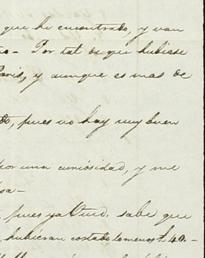 que he encontrado, y van
- Por tal de que hubiese
Paris, y aunque es mas de
pues no hay muy buen
por una curiosidad, y me
sa-
pues ya Vmd. sabe que
hubieran costado lo menos 40.-